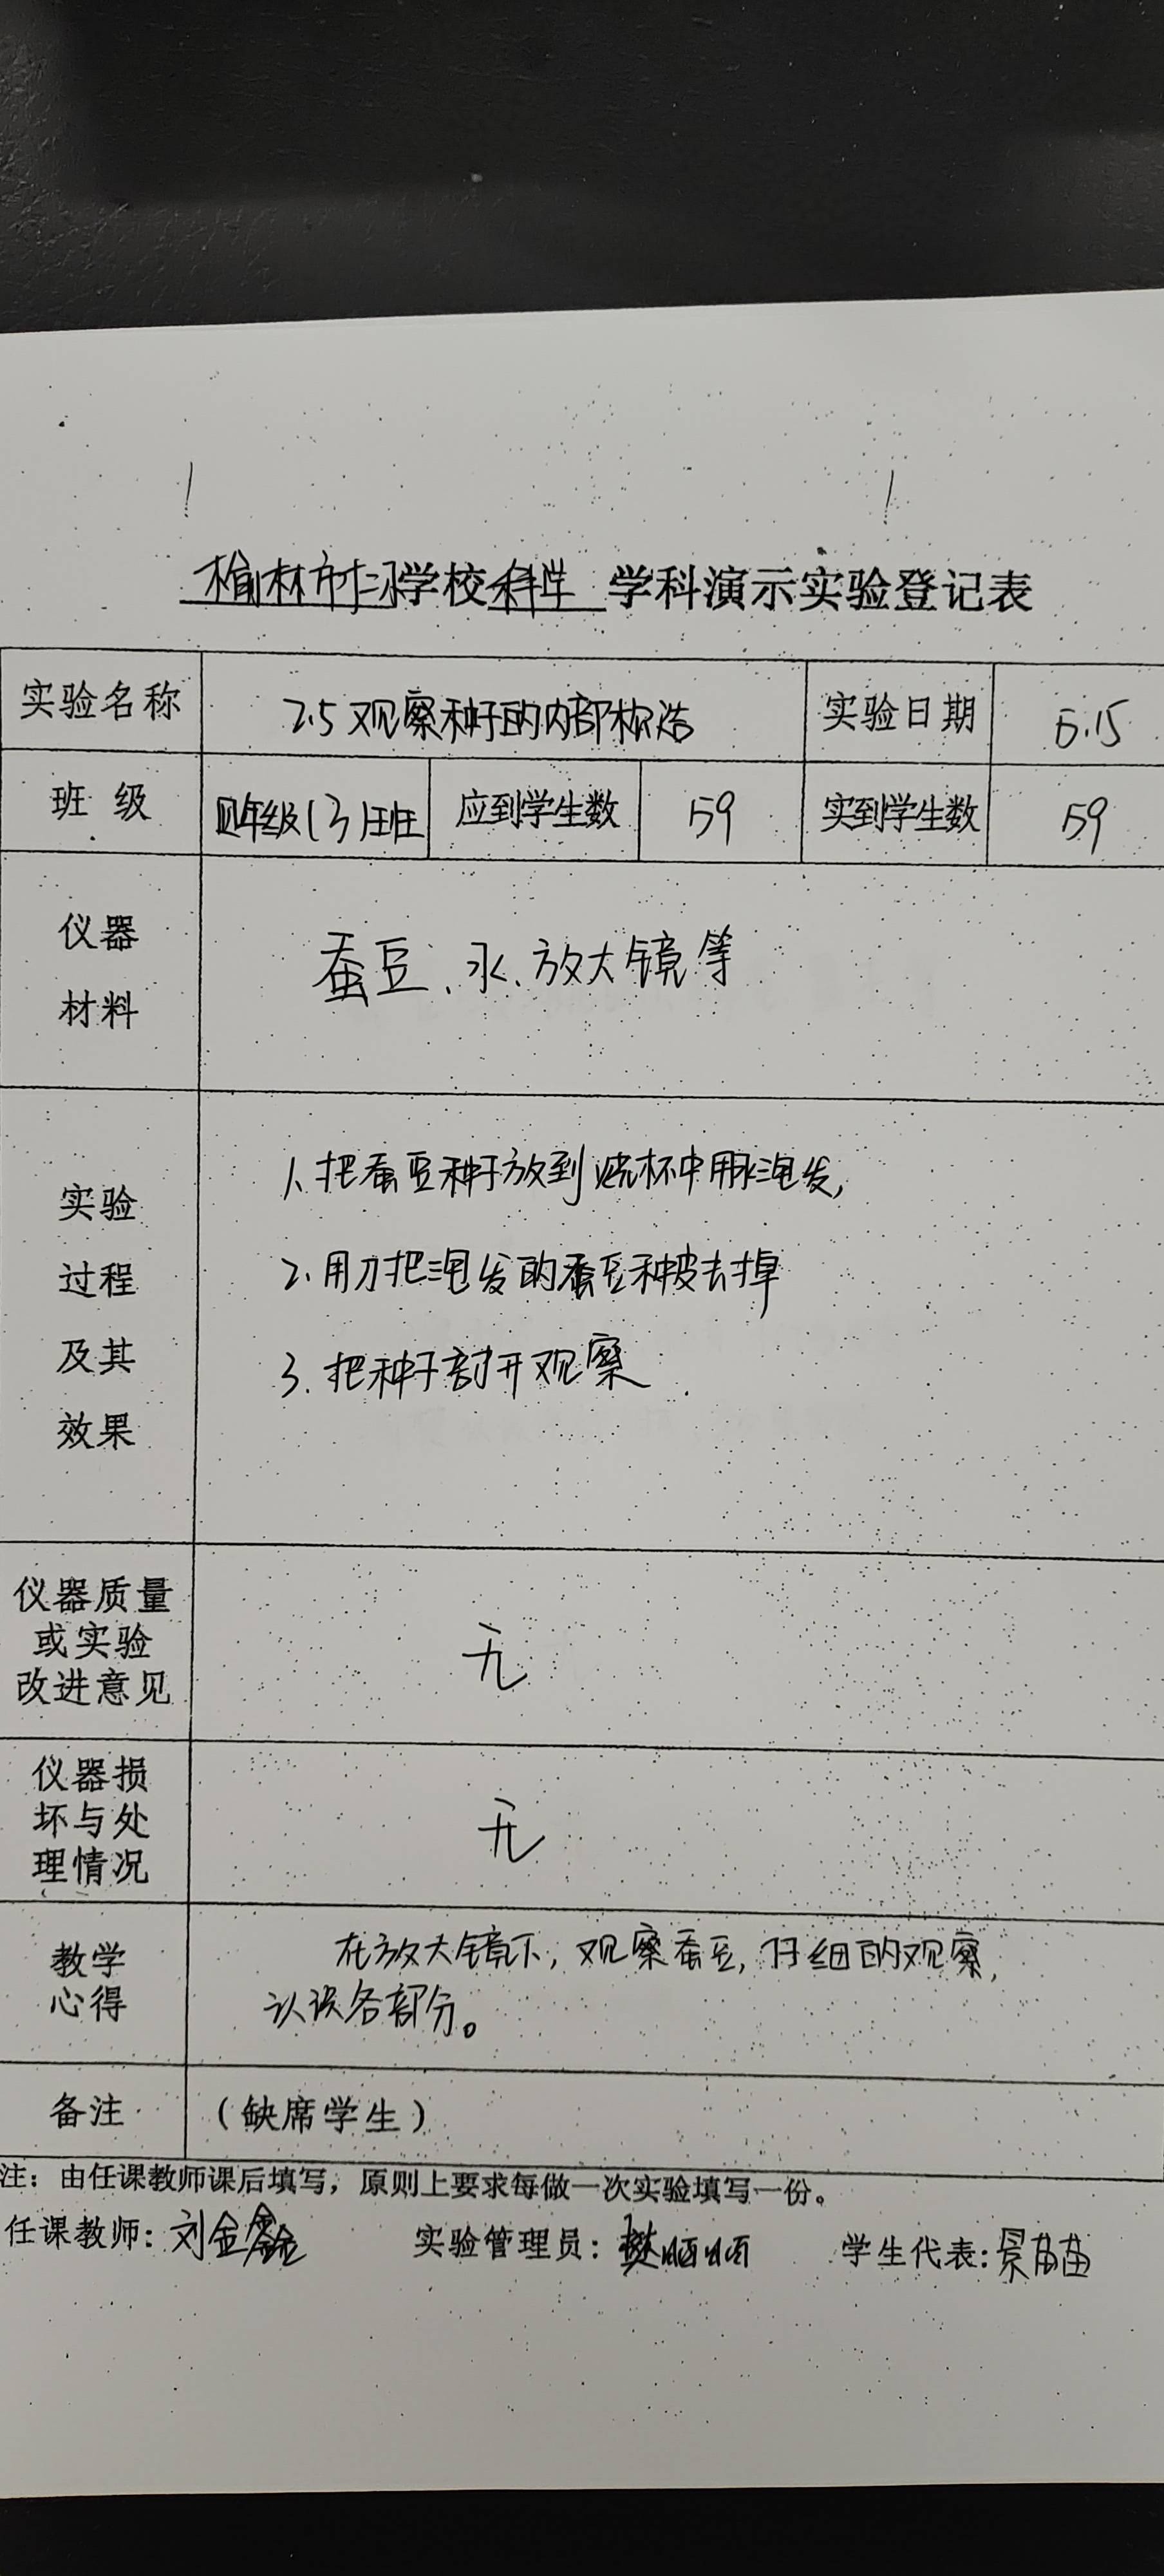 榆林市 学校 学科演示实验登记表
实验名称 2.5 观察种子的内部构造 实验日期 5.15
班 级 四年级(3)班 应到学生数 59 实到学生数 59
仪器
材料
蚕豆、水、放大镜等
实验
过程
及其
效果
1.把蚕豆种子放到烧杯中用水泡发,
2.用刀把泡发的蚕豆种皮去掉
3.把种子剖开观察
仪器质量
或实验
改进意见
无
仪器损
坏与处
理情况
无
教学
心得
在放大镜下,观察蚕豆,仔细的观察,
认识各部分。
备注 (缺席学生)
注:由任课教师课后填写,原则上要求每做一次实验填写一份。
任课教师:刘金鑫 实验管理员:樊 学生代表:景苗苗